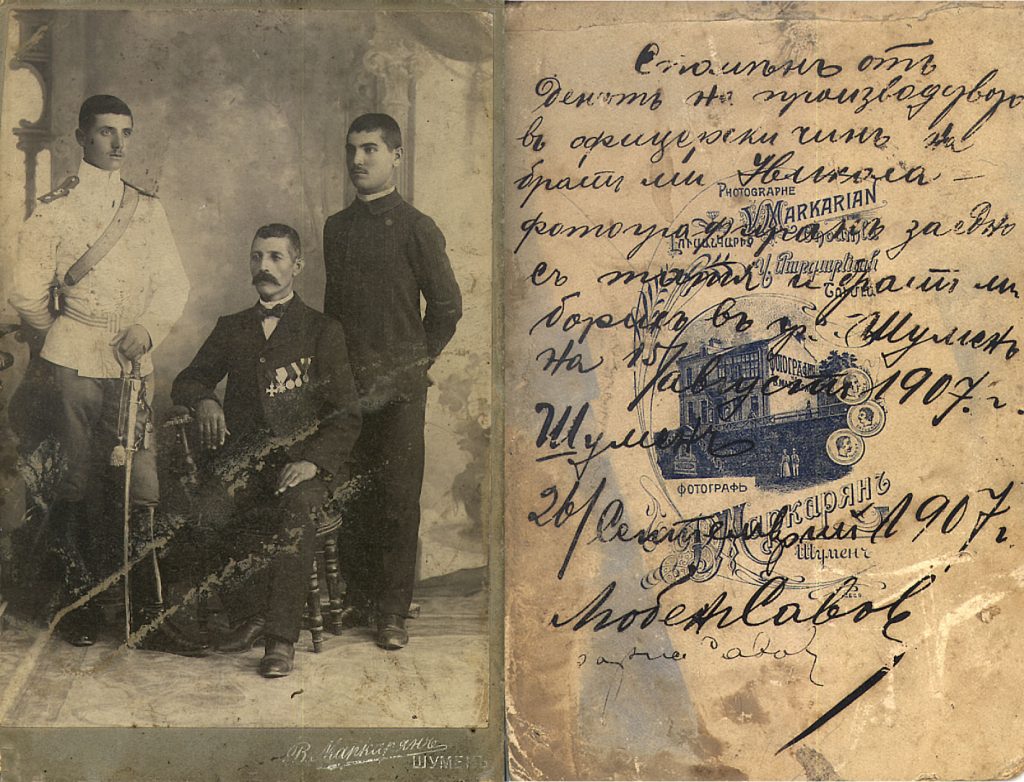 В. Маркарянъ
ШУМЕНЪ
Споменъ отъ
Деньтъ на производството
въ офицерски чинъ на
братъ ми Никола –
фотографирамъ заедно
съ татя и братъ ми
Борисъ въ гр. Шуменъ
на 15/августъ 1907. г.
Шуменъ
26/Септемврий 1907 г.
Любенъ Савовъ
PHOTOGRAPHE
V. MARKARIAN
ФОТОГРАФЪ
Маркарянъ
Шуменъ